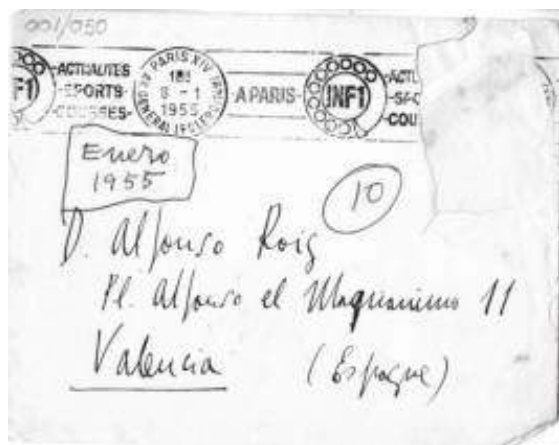 001/050
ACTUALITES
SPORTS
COURSES
PARIS XIV
8 - 1
1955
A PARIS
INF1
ACTU
COU
Enero
1955
10
D. Alfonso Roig
Pl. Alfonso el Magnanimo 11
Valencia (Espagne)